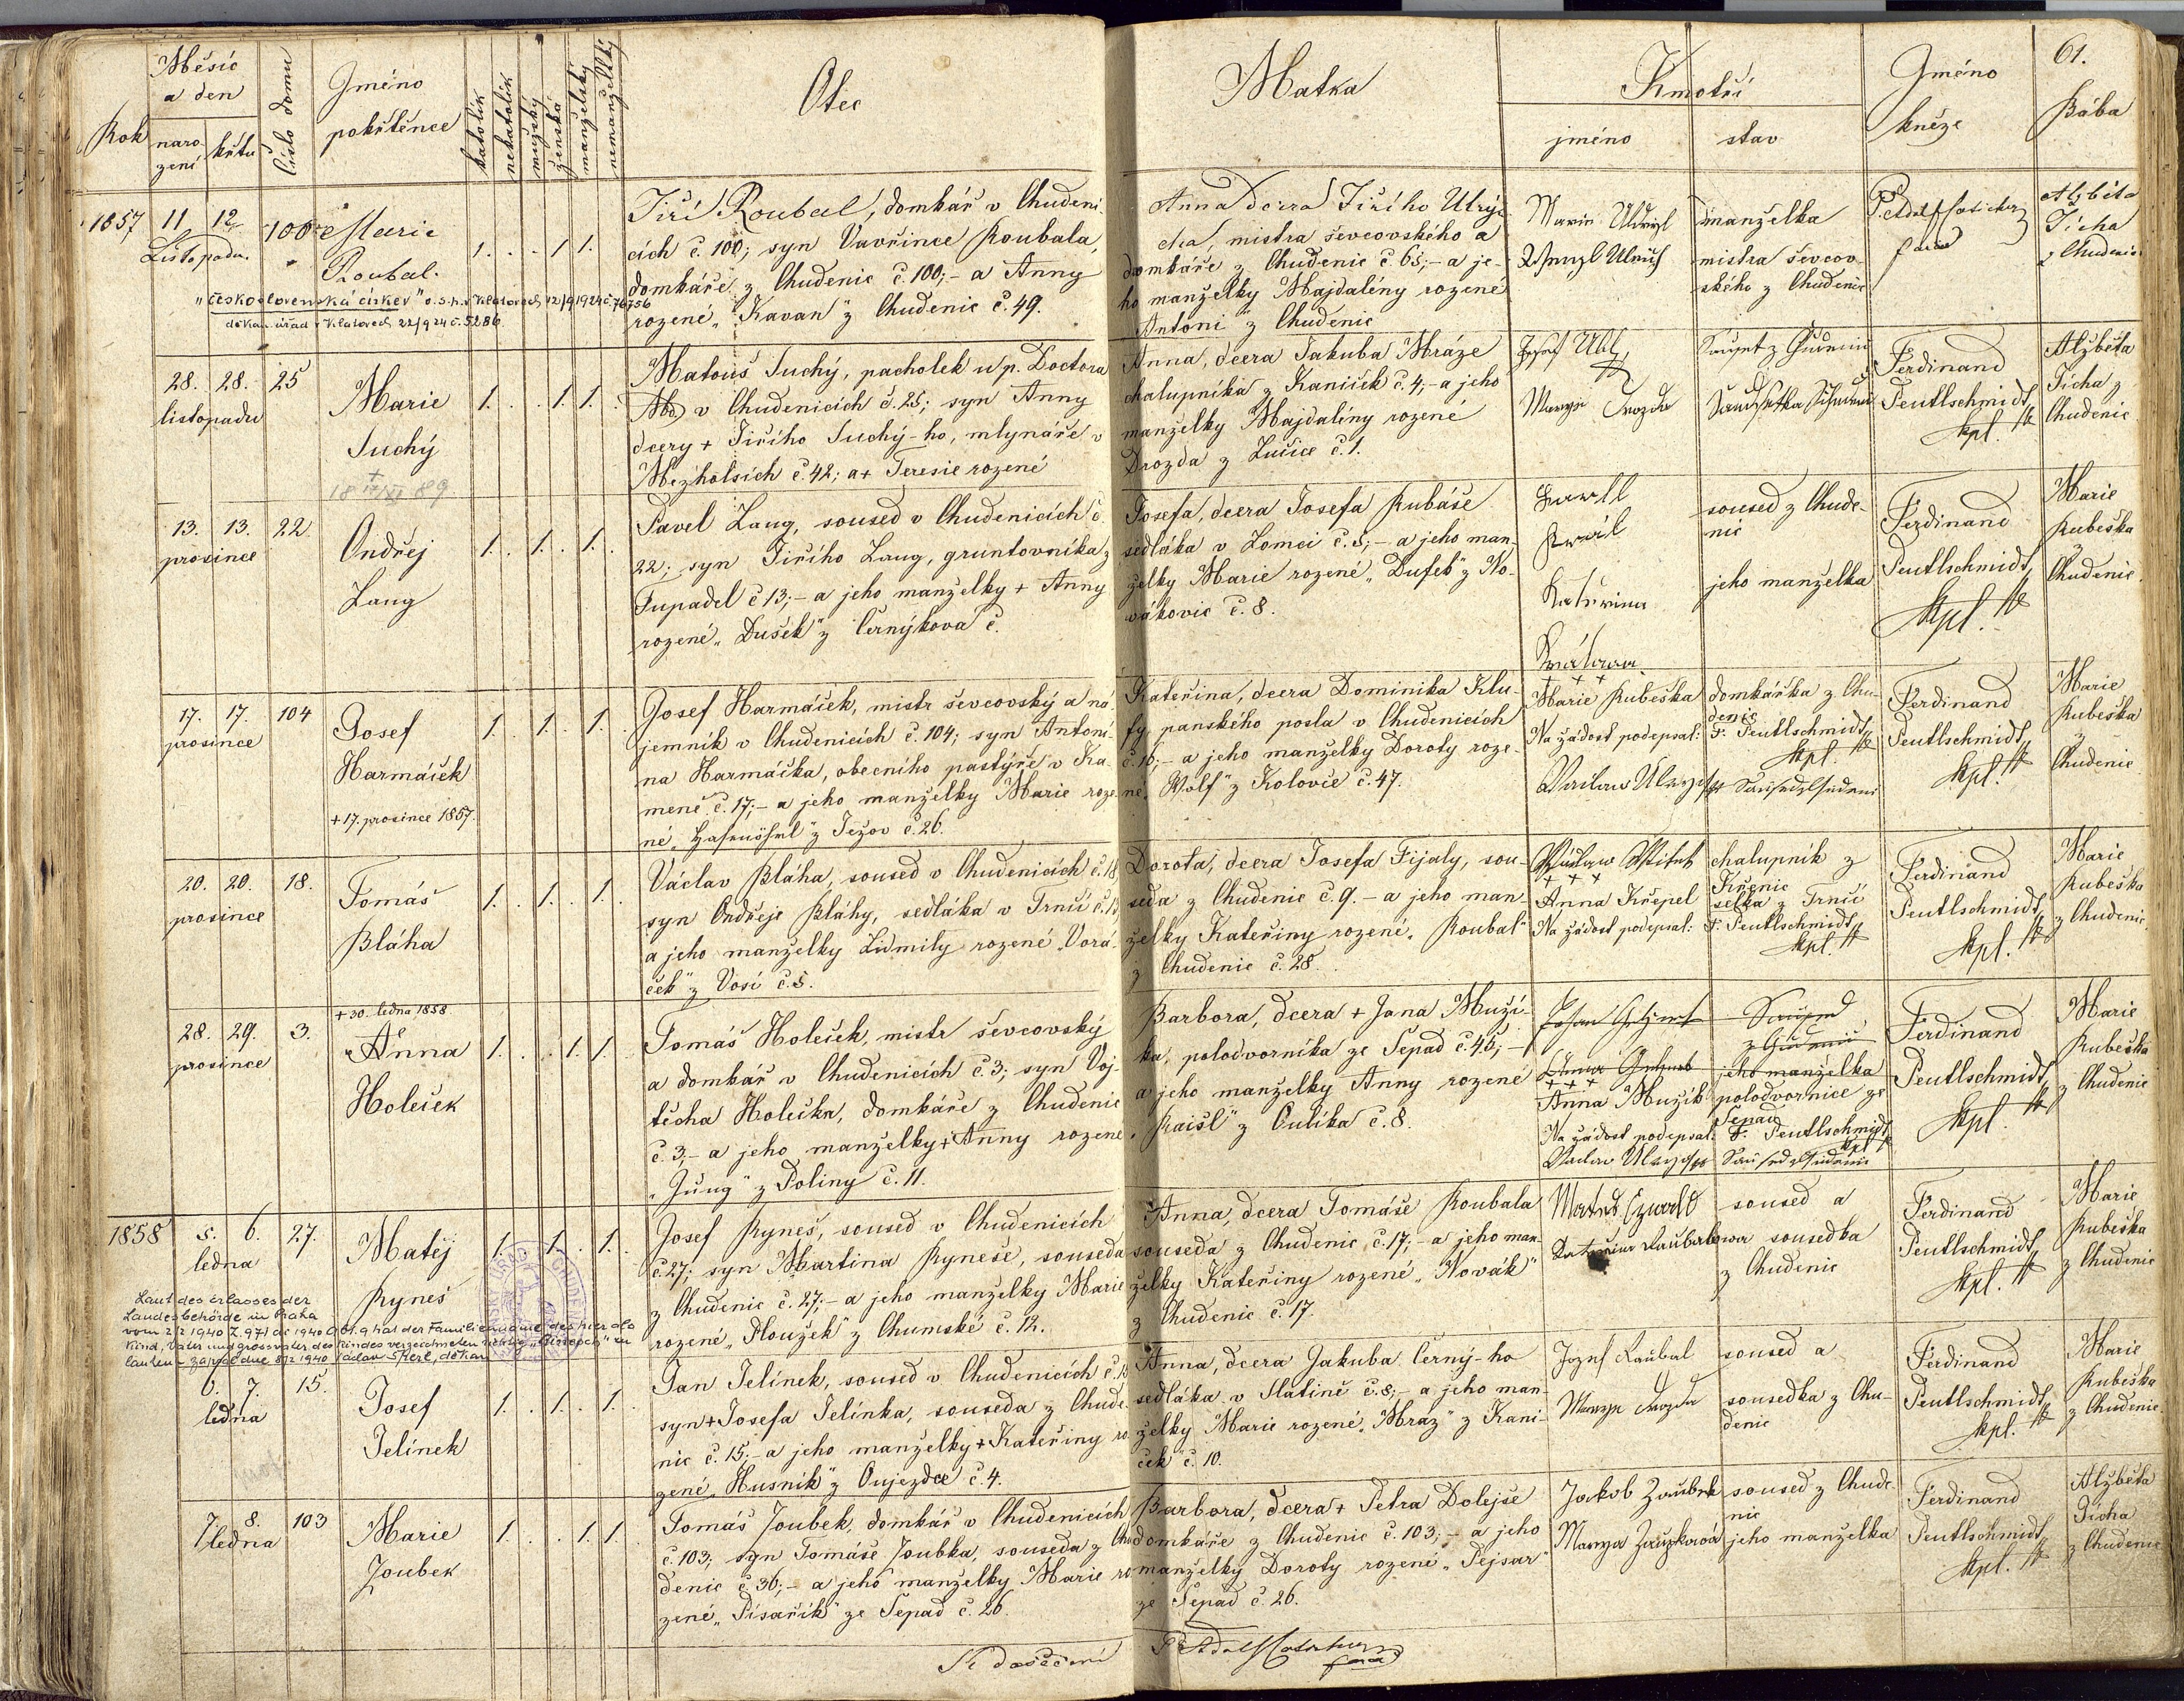 61.
Rok
Měsíc
a den
naro
zení
křtu
Číslo domu
Jméno
pokřtěnce
katolík
nekatolík
mužský
ženská
manželský
nemanželský
Otec
Matka
Kmotři
jméno
stav
Jméno
kněze
Bába
1857
11 12
Listopadu.
100
Marie
Roubal.
1. . . 1 1.
"československá církev" o.s.h. v Klatovech 12/9 1924 č. 76756
děkan. úřad v Klatovech 22/9 24 č. 5286
Jiří Roubal, domkář v Chudeni-
cích č. 100; syn Vavřince Roubala,
domkáře z Chudenic č. 100;- a Anny
rozené "Kavan" z Chudenic č. 49.
Anna dcera Jiřího Ulry-
cha, mistra ševcovského a
domkáře z Chudenic č. 65;- a je-
ho manželky Majdalény rozené
Antoni z Chudenic
manželka
mistra ševcov-
ského z Chudenic
Alžběta
Tichá
z Chudenic
28. 28. 25
listopadu
Marie
Suchý
+
18 17/XI 89
1. . . 1. 1.
Matouš Suchý, pacholek u p. Doctora
v Chudenicích č. 25; syn Anny
dcery + Jiřího Suchý-ho, mlynáře v
Mezholsích č 42; a + Teresie rozené
Anna, dcera Jakuba Mráze
chalupníka z Kaniček č. 4;- a jeho
manželky Majdalíny rozené
Drozda z Lučice č. 1.
Josef Ubl
Ferdinand
Peutlschmidt,
kpl.
Alžběta
Tichá z
Chudenic
13. 13. 22
prosince
Ondřej
Lang
1. . 1. . 1.
Pavel Lang, soused v Chudenicích č.
22; syn Jiřího Lang, gruntovníka z
Tupadel č 13;- a jeho manželky + Anny
rozené "Dušek" z Černýkova č.
Josefa, dcera Josefa Rubáše
sedláka v Lomci č. 5;- a jeho man-
želky Marie rozené "Dufek" z No-
vákovic č. 8.
Katerina
soused z Chude-
nic
jeho manželka
Ferdinand
Peutlschmidt,
kpl.
Marie
Rubeška
z
Chudenic
17. 17. 104
prosince
Josef
Harmáček
+ 17. prosince 1857.
1. . 1. . 1.
Josef Harmáček, mistr ševcovský a ná-
jemník v Chudenicích č. 104; syn Antoni-
na Harmáčka, obecního pastýře v Ka-
mené č. 17;- a jeho manželky Marie roze-
né z Ježov č. 26.
Kateřina, dcera Dominika Klu-
fy, panského posla v Chudenicích
č. 16;- a jeho manželky Doroty roze-
né "Wolf" z Kolovče č. 47.
+ + +
Marie Rubeška
Na žádost podepsal:
domkářka z Chu-
denic
F. Peutlschmidt,
kpl.
Ferdinand
Peutlschmidt,
kpl.
Marie
Rubeška
z
Chudenic
20. 20. 18.
prosince
Tomáš
Bláha
1. . 1. . 1.
Václav Bláha, soused v Chudenicích č. 18
syn Ondřeje Bláhy, sedláka v Trnčí č. 13
a jeho manželky Ludmily rozené "Vorá-
ček" z Vosí č. 5.
Dorota, dcera Josefa Fijaly, sou-
seda z Chudenic č. 9. - a jeho man-
želky Kateřiny rozené "Roubal"
z Chudenic č. 28.
+ + +
Anna Křepel
Na žádost podepsal:
chalupník z
Křenic
selka z Trnčí
F. Peutlschmidt,
kpl.
Ferdinand
Peutlschmidt,
kpl.
Marie
Rubeška
z Chudenic
28. 29. 3.
prosince
+ 30. ledna 1858.
Anna
Holeček
1. . . 1. 1.
Tomáš Holeček, mistr ševcovský
a domkář v Chudenicích č. 3; syn Voj-
těcha Holečka, domkáře z Chudenic
č. 3;- a jeho manželky + Anny rozené
"Jung" z Poliny č. 11.
Barbora, dcera + Jana Muží-
ka, polodvorníka ze Sepad č. 46;-
a jeho manželky Anny rozené
"Raišl" z Oulíka č. 8.
+ + +
Anna Mužík
Na žádost podepsal:
jeho manželka
polodvornice ze
Sepad
F. Peutlschmidt,
kpl.
Ferdinand
Peutlschmidt,
kpl.
Marie
Rubeška
z Chudenic
1858
5. 6. 27.
ledna
Matěj
Ryneš
1. . 1. . 1.
Laut des Erlasses der
Landesbehörde in Praha
vom 2/2 1940 Z. 971 de 1940 hat der Familienname des hier als
Kind, Vater und Grossvater des Kindes verzeichneten richtig zu
lauten - zapsal dne 8/2 1940 Václav Skerl, děkan
Josef Ryneš, soused v Chudenicích
č. 27; syn Martina Ryneše, souseda
z Chudenic č. 27;- a jeho manželky Marie
rozené "Ploužek" z Chumské č. 12.
Anna, dcera Tomáše Roubala
souseda z Chudenic č. 17;- a jeho man-
želky Kateřiny rozené "Novák"
z Chudenic č. 17.
soused a
sousedka
z Chudenic
Ferdinand
Peutlschmidt,
kpl.
Marie
Rubeška
z Chudenic
6. 7. 15.
ledna
Josef
Jelínek
1. . 1. . 1.
Jan Jelínek, soused v Chudenicích č. 15
syn + Josefa Jelínka, souseda z Chude-
nic č. 15;- a jeho manželky + Kateřiny ro-
zené "Husník" z Oujezdce č. 4.
Anna, dcera Jakuba Černý-ho
sedláka v Slatině č. 8;- a jeho man-
želky Marie rozené "Mraz" z Kani-
ček č. 10.
Jozef Raubal
soused a
sousedka z Chu-
denic
Ferdinand
Peutlschmidt,
kpl.
Marie
Rubeška
z Chudenic
7 8. 103
ledna
Marie
Joubek
1. . . 1. 1.
Tomáš Joubek, domkář v Chudenicích
č. 103; syn Tomáše Joubka, souseda z Chu-
denic č. 36;- a jeho manželky Marie ro-
zené "Písařík" ze Sepad č. 26.
Barbora, dcera + Petra Dolejše
domkáře z Chudenic č. 103;- a jeho
manželky Doroty rozené "Pejsar"
ze Sepad č. 26.
Jakob Zaubek
soused z Chude-
nic
jeho manželka
Ferdinand
Peutlschmidt,
kpl.
Alžběta
Tichá
z Chudenic